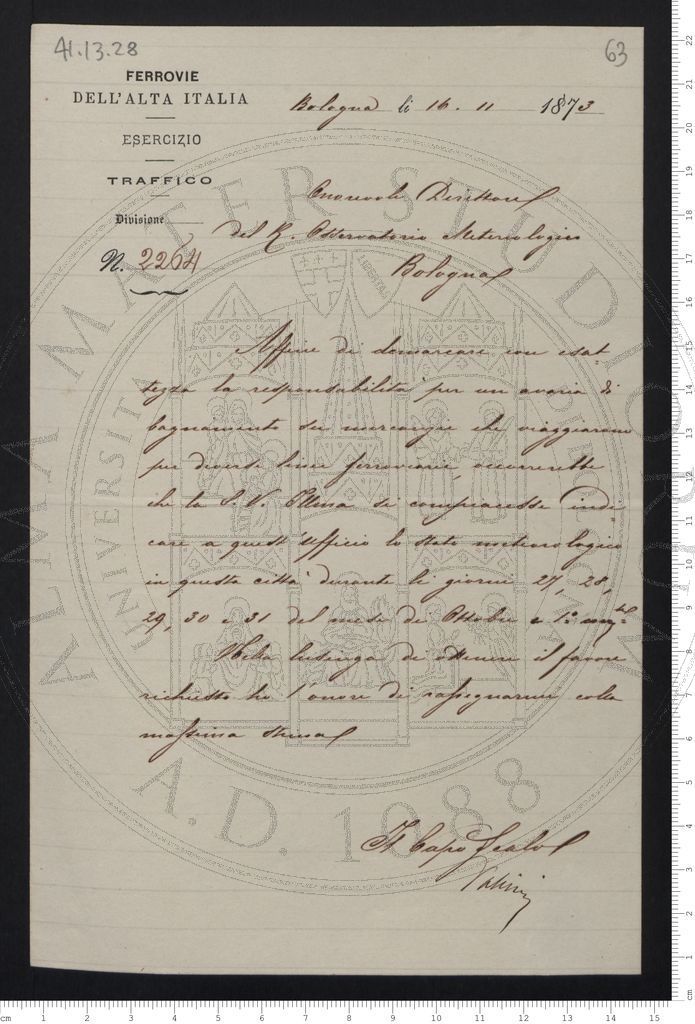 41.13.28
63
FERROVIE
DELL'ALTA ITALIA
ESERCIZIO
TRAFFICO
Divisione
N. 2264
Bologna li 16. 11 1873
Onorevole Direttore
del R. Osservatorio Meteorologico
Bologna
Affine di demarcare con esat-
tezza la responsabilità per un avaria di
bagnamento su merci che viaggiarono
per diverse linee ferroviarie, occorrerebbe
che la S. V. Illma si compiacesse indi-
care a quest'Ufficio lo stato meteorologico
in questa città durante li giorni 27, 28,
29, 30 e 31 del mese di Ottobre e 1º
Nella lusinga di ottenere il favore
richiesto ho l'onore di rassegnarmi colla
massima stima
Il Capo Scalo
ALMA MATER STUDIORUM
A.D. 1088
cm 1 2 3 4 5 6 7 8 9 10 11 12 13 14 15
cm 1 2 3 4 5 6 7 8 9 10 11 12 13 14 15 16 17 18 19 20 21 22